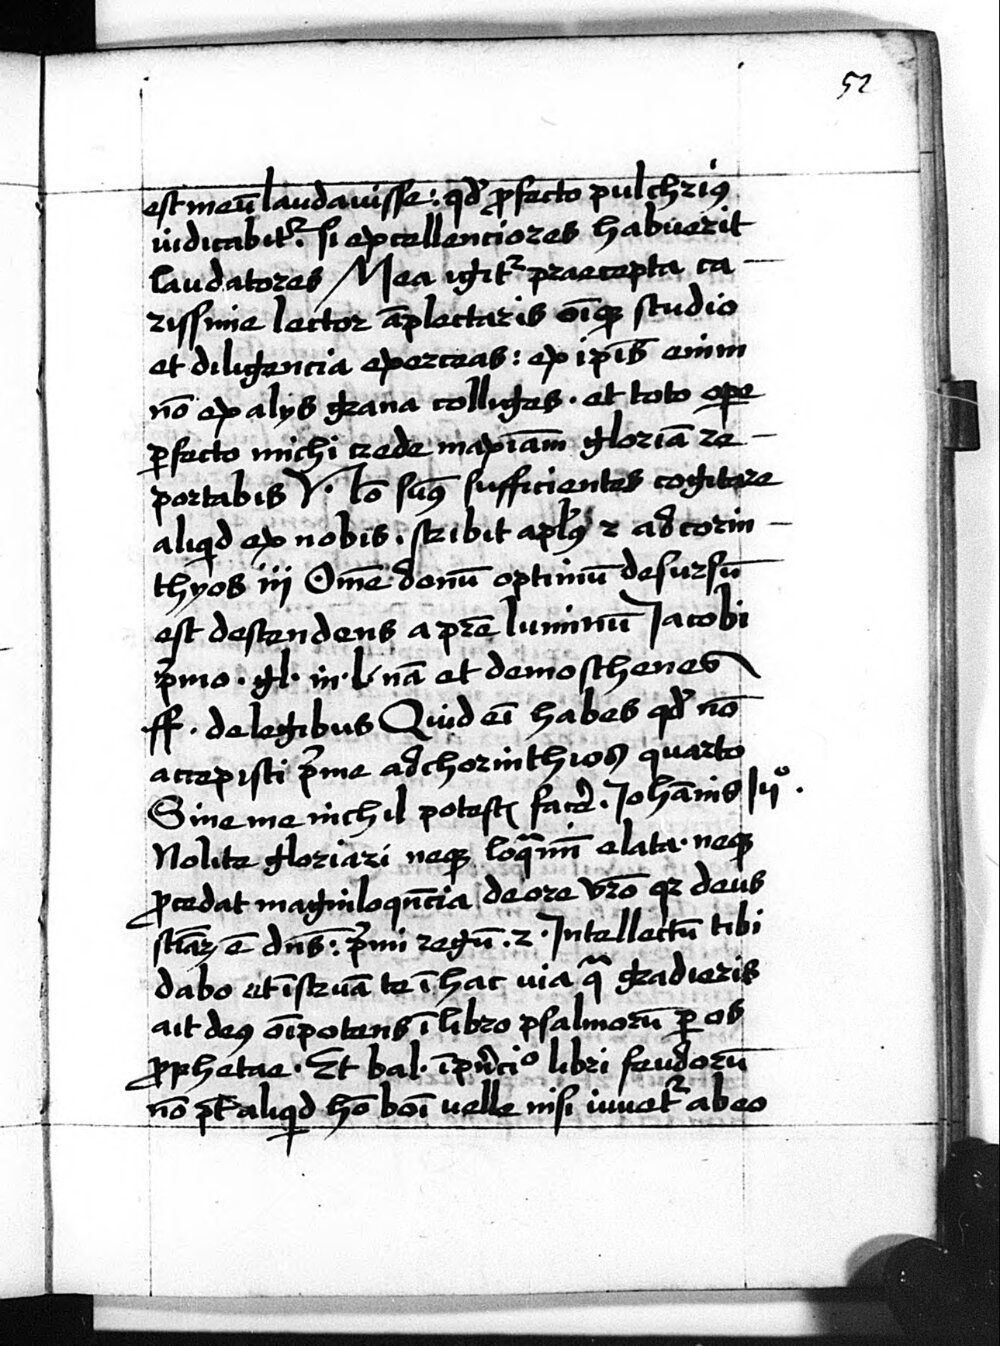 52
est meū laudauisse: qd' ꝓfecto pulchriꝰ
iudicabitᷣ. si excellenciores habuerit
laudatores Mea igitᷣ praecepta ca–
rissime lector āplectaris oīqꝫ studio
et diligencia exerceas: ex ip̄is enim
nō ex alijs grana colliges. et toto oꝑe
ꝑfecto michi crede maxīam gloriā re–
portabis V. Nō sūꝰ sufficientes cogitare
aliqd ex nobis. scribit apl'ꝰ 2 ad corin–
thyos iij Om̄e donū optimū desursū
est descendens a pr̄e luminū Jacobi
p̄mo. gl. in. l. nā et demosthenes
ff. de legibus Quid eī habes qd' nō
accepisti p̄me ad chorinthios quarto
Sine me nichil potestꝭ fac̄e. Johānis
Nolite gloriari neqꝫ loqͣmī elata. neqꝫ
ꝓcedat magniloqn̄cia de ore vr̄o qꝛ deus
sciāꝝ ē dn̄s: p̄mi regū. 2. Intellectū tibi
dabo et īstruā te ī hac uia qͣ gradieris
ait deꝰ oīpotens ī libro psalmorū ꝑ os
ꝓphetae. Et bal. ī pn̄cio libri feudorū
nō pt̄ aliqd hō boī uelle nisi iuuetᷣ ab eo